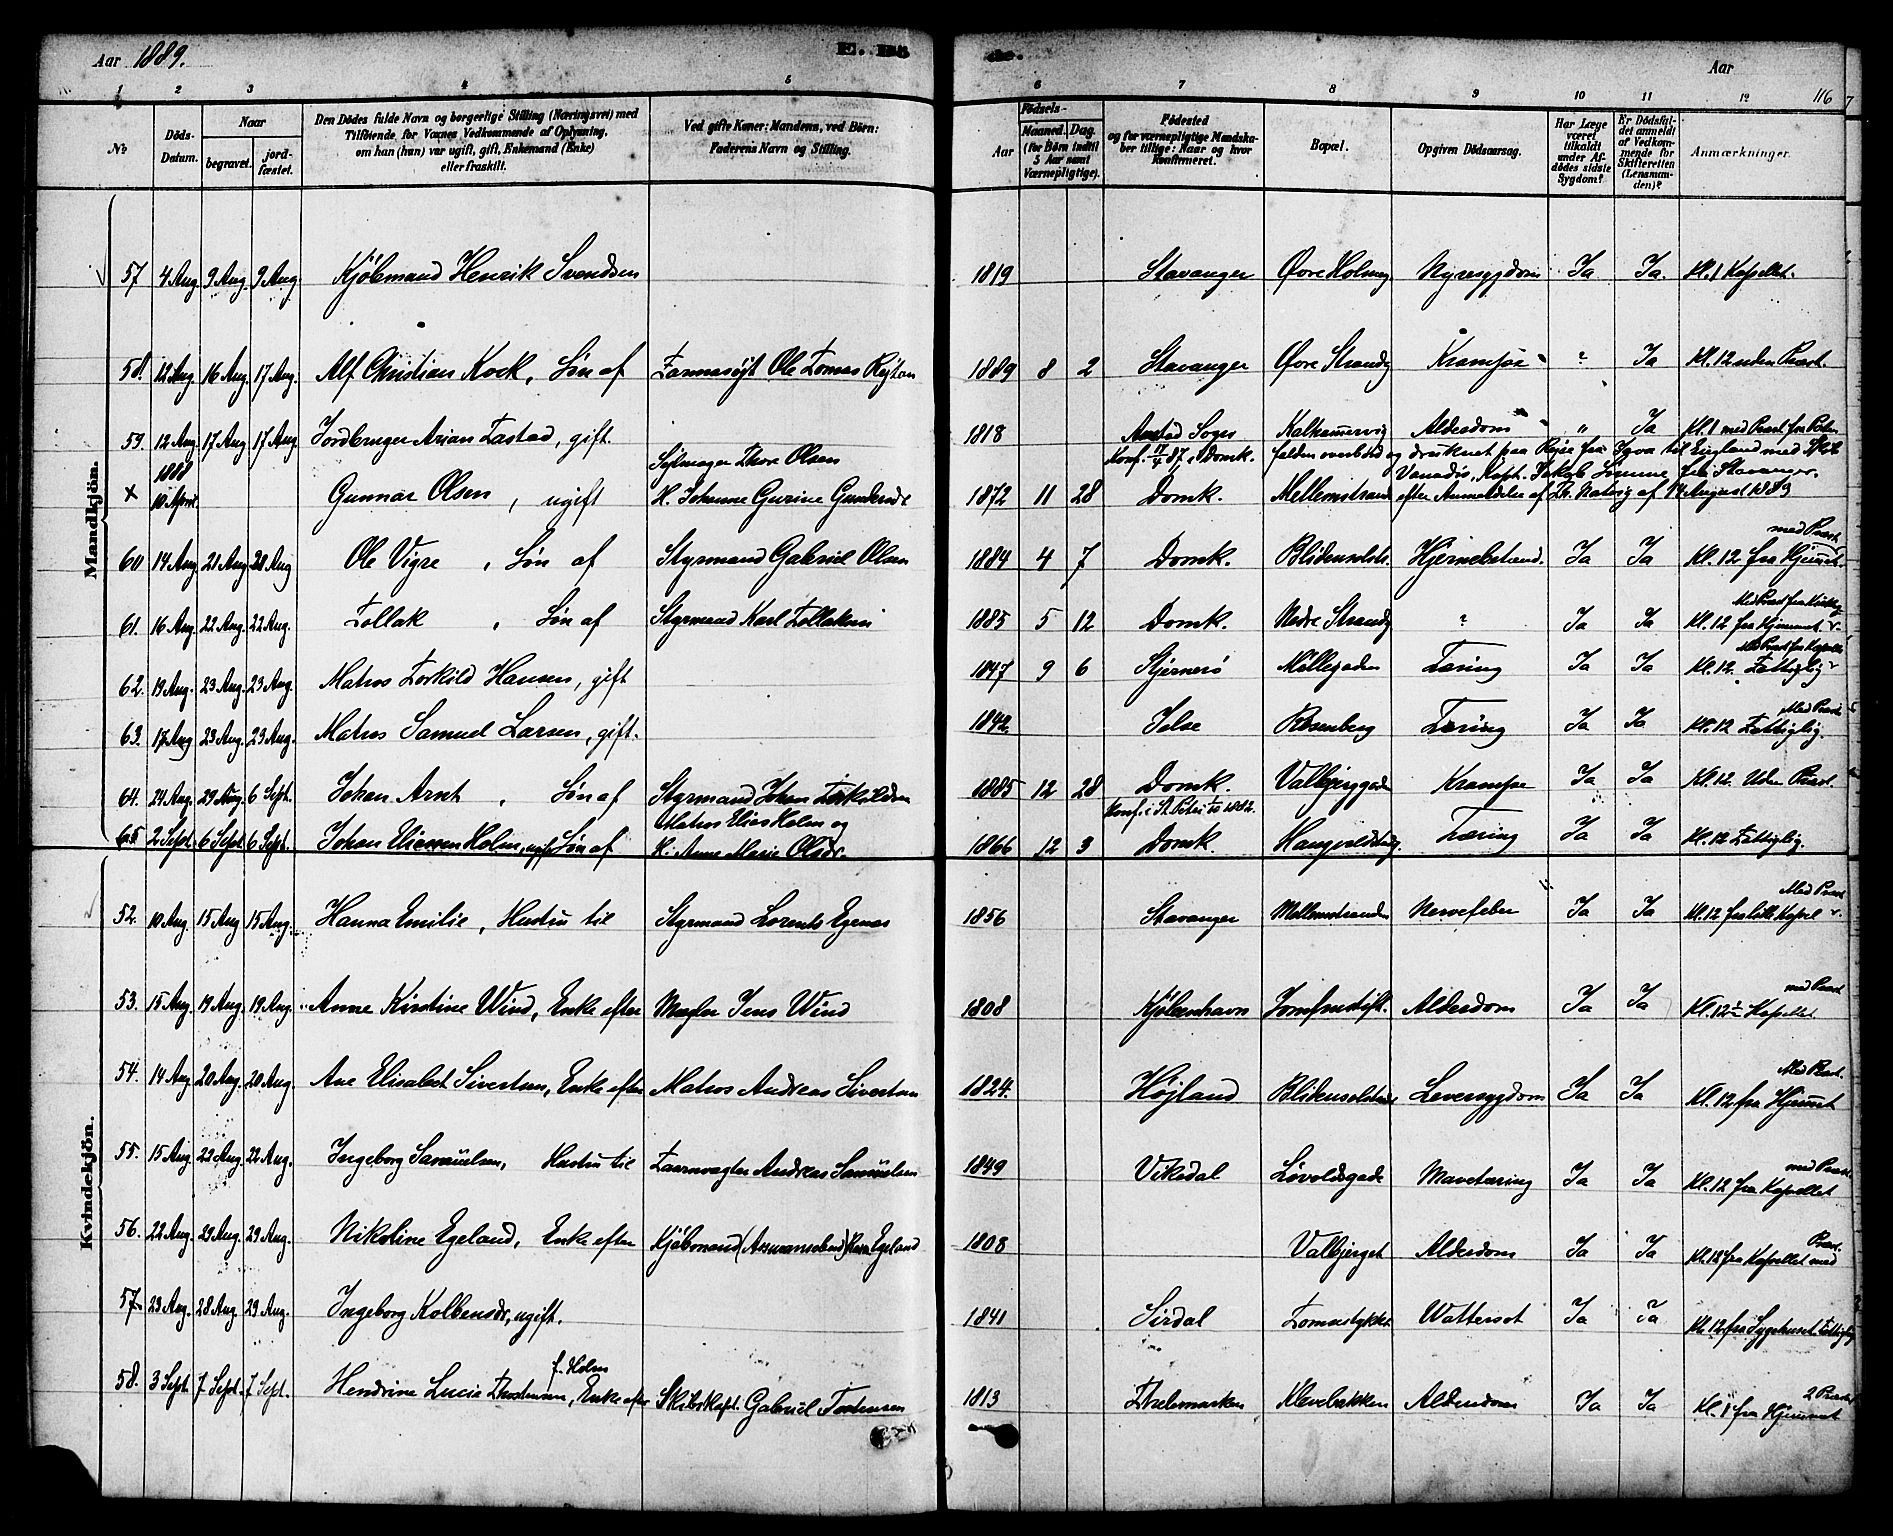 Aar 1889.
Aar
116
1 2 3 4 5 6 7 8 9 10 11 12
No
Döds-Datum.
Naar
begravet.
jord-fæstet.
Den Dödes fulde Navn og borgerlige Stilling (Næringsvei) med
Tilföiende for Voxnes Vedkommende af Oplysning,
om han (hun) var ugift, gift, Enkemand (Enke)
eller fraskilt.
Ved gifte Koner: Mandens, ved Börn:
Faderens Navn og Stilling.
Födsels-
Aar
Maaned. Dag.
(for Börn indtil
5 Aar samt
Værnepligtige).
Födested
og for værnepligtige Mandska-
ber tillige: Naar og hvor
Konfirmeret.
Bopæl.
Opgiven Dödsaarsag.
Har Læge
været
tilkaldt
under Af-
dödes sidste
Sygdom?
Er Dödsfal-
det anmeldt
af Vedkom-
mende for
Skifteretten
(Lensman-
den)?
Anmærkninger.
Mandkjön.
57 4 Aug 9 Aug. 9 Aug Kjöbmand Henrik Svendsen 1819 Stavanger Øvre Holmeg Nyresygdom Ja Ja. Kl. 1 Kapellet.
58. 12 Aug 16 Aug. 17 Aug. Alf Christian Kock, Sön af 1889 8 2 Stavanger Øvre Strandg Krampe ? Ja Kl. 12 uden Præst.
59. 12 Aug. 17 Aug. 17 Aug Jordbruger Arian Tastad, gift. 1818 Sogn Alderdom " Ja Kl. 1 med Præst fra
Konf. 87 i Domk. falden overbord og druknet paa Rejse fra til England med Skib
1888
x 10 April Gunnar Olsen, ugift Sejlmager Thor Olsen
H. Johanne Gurine Gundersdr 1872 11 28 Domk. Mellemstrand Kapt. Jakob fra Stavanger.
efter Anmeldelse af 14 August 1889
60 14 Aug 21 Aug Aug Ole Vigre, Sön af Styrmand Gabriel Olsen 1884 4 7 Domk. Blidensolstr. Hjernebetænd. Ja Ja med Præst
Kl. 12 fra Hjemmet.
61. 16 Aug 22 Aug. 22 Aug. Tollak, Sön af Styrmand Karl Tollaksen 1885 5 12 Domk. Nedre Strandg ? Ja Ja Kl. 12 fra Hjemmet
62. 19 Aug. 23 Aug. 23 Aug. Matros Torkild Hansen, gift 1847 9 6 Stjernerö Möllegaden Tæring Ja Ja Kl. 12. Fattiglig
63. 17 Aug 23 Aug. 23 Aug. Matros Samuel Larsen, gift. 1842 Jelse Rosenberg Tæring Ja Ja Med Præst
Kl. 12 Fattiglig.
64. 24 Aug. 29 Aug. 6 Sept. Johan Arnt, Sön af Styrmand Johan Torkildsen 1885 12 28 Domk. Valbjerggade Krampe Ja Ja Kl. 12. Uden Præst.
65 2 Sept 6 Sept 6 Sept. Johan Eliesen Holm, ugift Sön af Matros Elias Holm og
H. Anne Marie Olsdr. 1866 12 3 Konf. i St. Petri 1882.
Domk. Tæring Ja Ja Kl. 12 Fattiglig.
Kvindekjön.
52. 10 Aug. 15 Aug 15 Aug. Hanna Emilie, Hustru til Styrmand Lorents Egenes 1856 Stavanger Mellemstranden Nervefeber Ja Ja Med Præst
Kl. 12 fra lille Kapel
53. 15 Aug. 19 Aug. 19 Aug. Anne Kirstine Wind, Enke efter Mægler Jens Wind 1808 Kjöbenhavn Jomfrustift. Alderdom Ja Ja med Præst
Kl. 12½ Kapellet
54. 14 Aug 20 Aug. 20 Aug. Ane Elisabet Sivertsen, Enke efter Matros Andreas Sivertsen 1824. Höjland Blidensolstr Leversygdom Ja Ja Med Præst.
Kl. 12 fra Hjemmet
55. 15 Aug 22 Aug. 22 Aug. Ingeborg Samuelsen, Hustru til Taarnvægter Andreas Samuelsen 1849 Vikedal Lövoldsgade Mavetæring Ja Ja med Præst.
Kl. 12 fra Kapellet
56. 22 Aug. 29 Aug. 29 Aug. Nikoline Egeland, Enke efter Kjöbmand Egeland 1808 Valbjerget Alderdom Ja Ja Præst.
Kl. 12 fra Kapellet med
57. 23 Aug. 28 Aug. 29 Aug. Ingeborg Kolbensdr, ugift. 1841 Sirdal Wattersot Ja Ja Kl. 12 fra Sygehuset. Fattiglig
58. 3 Sept. 7 Sept. 7 Sept. Hendrine Lucie Thostensen f. Holm, Enke efter Skibskapt. Gabriel Tostensen 1813 Thelemarken Klevebakken Alderdom Ja Ja 2 Præster
Kl. 1 fra Hjemmet